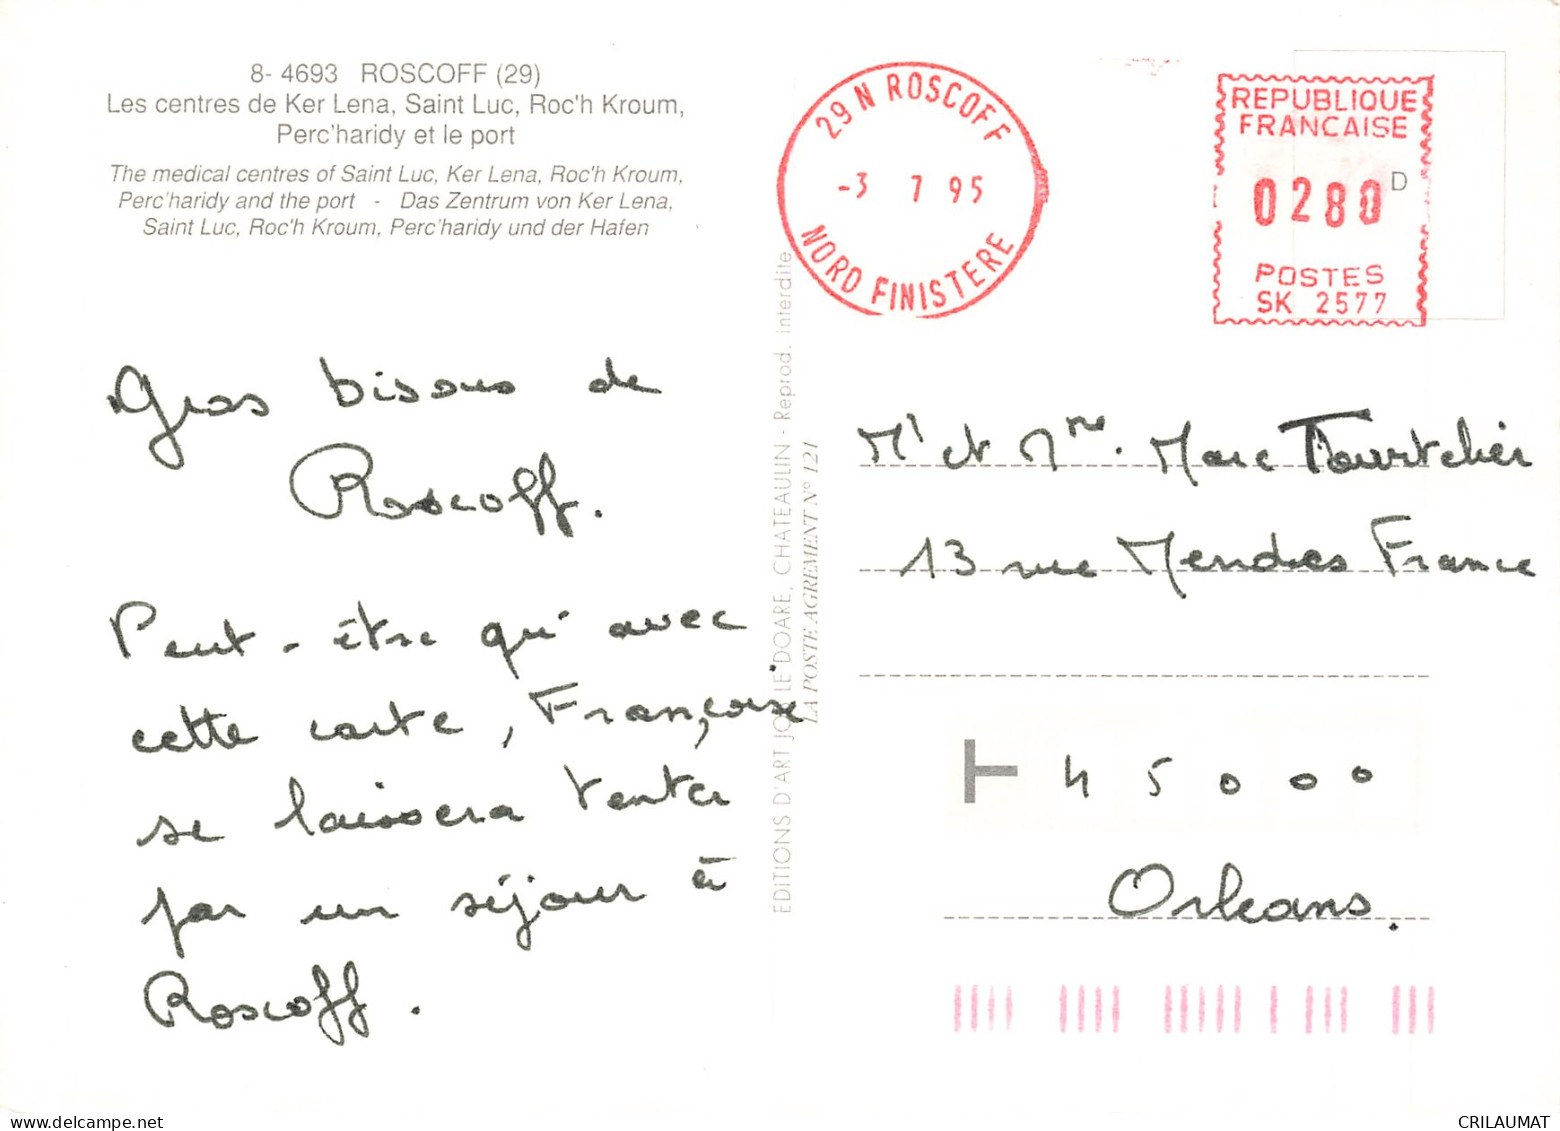 8- 4693 ROSCOFF (29)
Les centres de Ker Lena, Saint Luc, Roc'h Kroum,
Perc'haridy et le port
The medical centres of Saint Luc, Ker Lena, Roc'h Kroum,
Perc'haridy and the port - Das Zentrum von Ker Lena,
Saint Luc, Roc'h Kroum, Perc'haridy und der Hafen
Gros bisous de
Roscoff.
Peut-être qu'avec
cette carte, Françoise
se laissera tenter
par un séjour à
Roscoff.
EDITIONS D'ART JOS LE DOARE, CHATEAULIN - Reprod. interdite
LA POSTE AGREMENT N° 121
29 N ROSCOFF
-3 7 95
NORD FINISTERE
REPUBLIQUE
FRANCAISE
0280
D
POSTES
SK 2577
Mr et Mme. Marc Tourtelier
13 rue Mendes France
T 45000
Orleans.
www.delcampe.net
CRILAUMAT